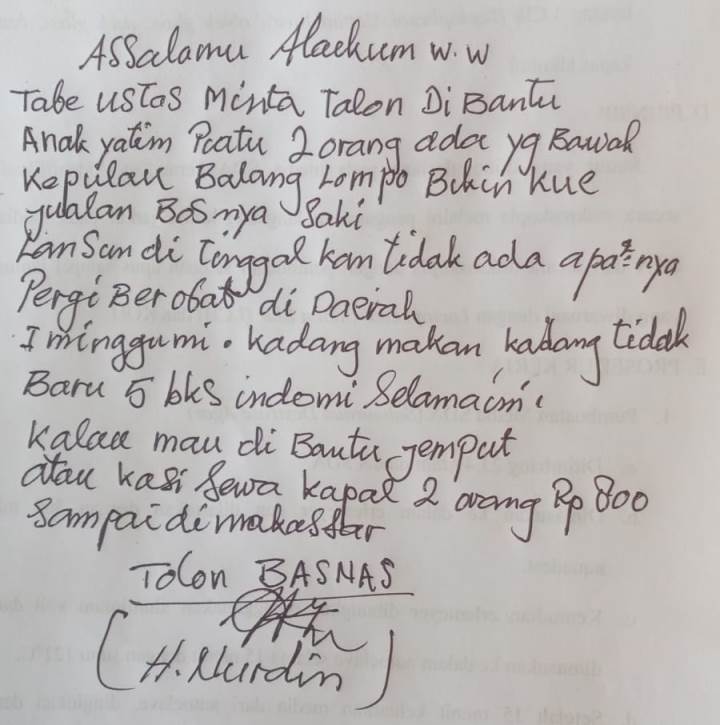 ASSalamu Alaekum w.w
Tabe USTaS Minta Talon Di Bantu
Anak yatim Piatu 2 orang ada yg Bawah
Kepulau Balang Lompo Bikin Kue
jualan BoS nya Saki
Lansun di Tinggal kan tidak ada apa²nya
Pergi Berobat di Daerah
I minggu mi. kadang makan kadang tidak
Baru 5 bks indomi Selama ini
Kalau mau di Bantu jemput
atau kasi Sewa kapal 2 orang Rp 800
Sampai di makassar
Tolon BASNAS
( H. Nurdin )